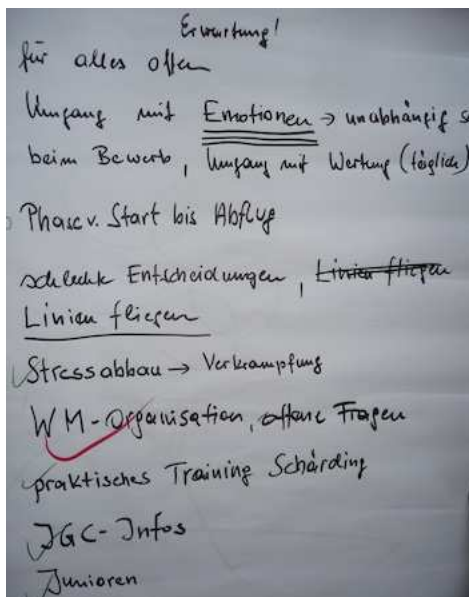 Erwartung!
für alles offen
Umgang mit Emotionen → unabhängig s
beim Bewerb, Umgang mit Wertung (täglich)
Phase v. Start bis Abflug
schlechte Entscheidungen, Linien fliegen
Linien fliegen
Stressabbau → Verkrampfung
WM-Organisation, offene Fragen
praktisches Training Schärding
IGC-Infos
Junioren